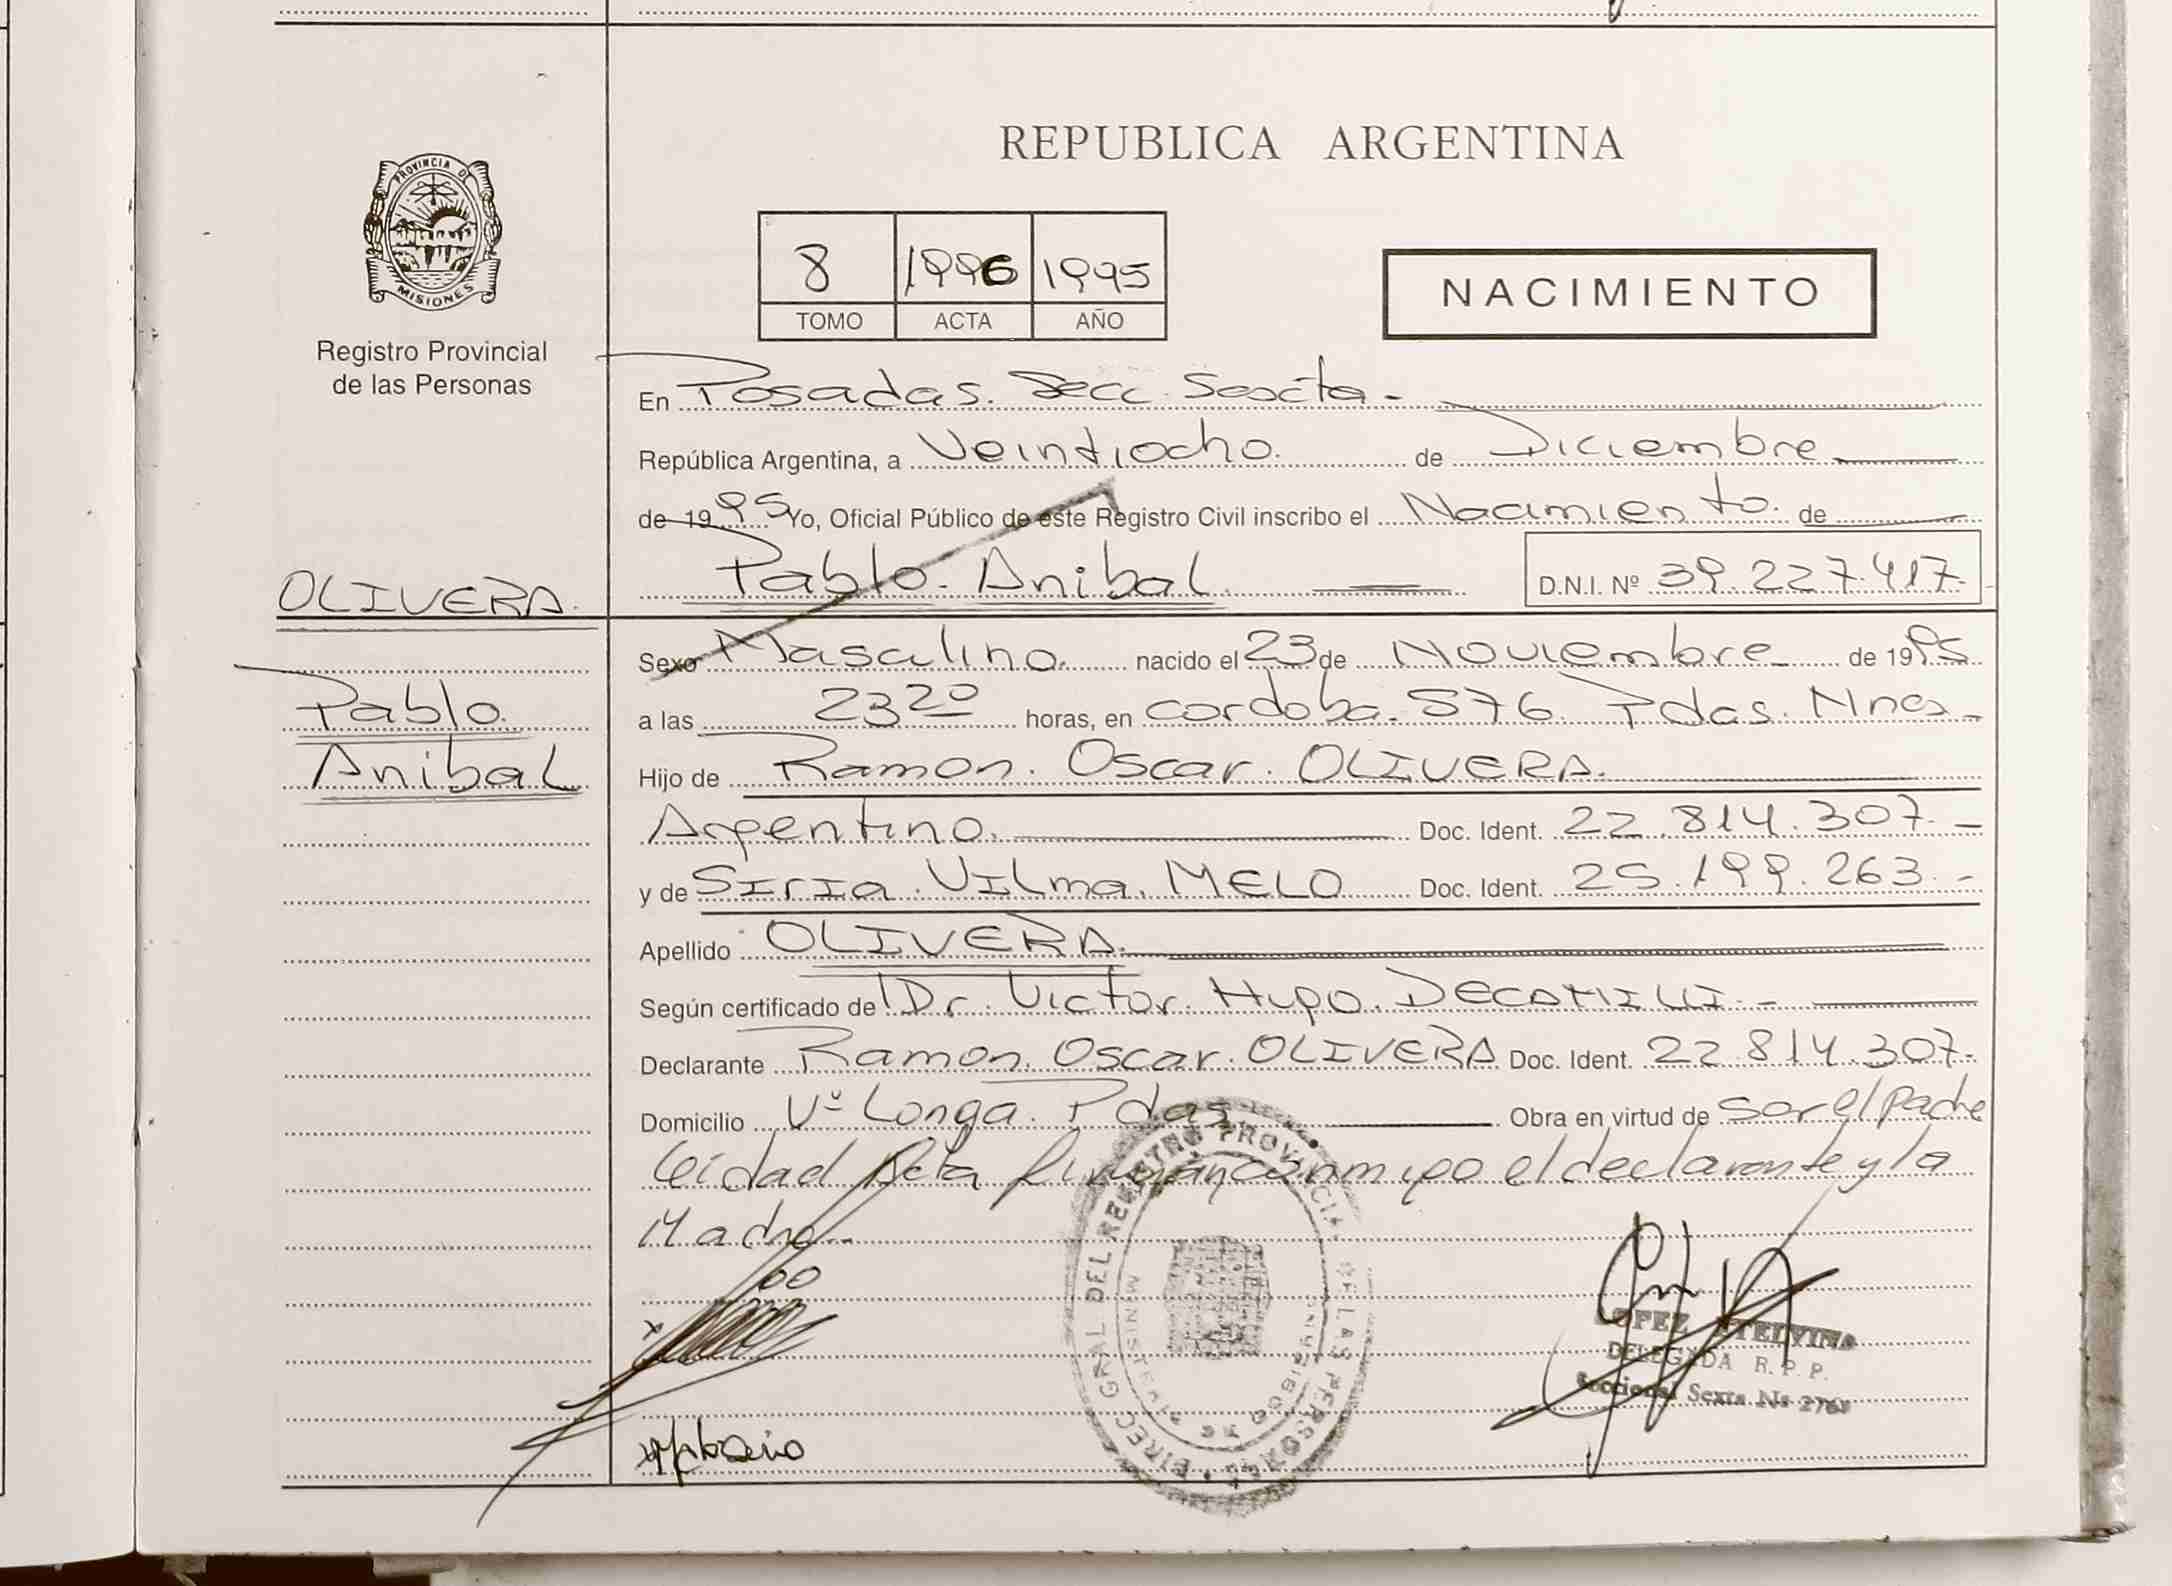 REPUBLICA ARGENTINA
PROVINCIA DE
MISIONES
Registro Provincial
de las Personas
8 1996 1995
TOMO ACTA AÑO
NACIMIENTO
En Posadas. Secc. Sexta -
República Argentina, a Veintiocho. de Diciembre
de 1995 Yo, Oficial Público de este Registro Civil inscribo el Nacimiento. de
OLIVERA.
Pablo. Anibal. D.N.I. Nº 39.227.417.
Pablo.
Anibal
Sexo Masculino. nacido el 23 de Noviembre de 1995
a las 23 20 horas, en cordoba. 576. Pdas. Mnes -
Hijo de Ramon. Oscar. OLIVERA.
Argentino. Doc. Ident. 22.814.307. -
y de Siria. Vilma. MELO Doc. Ident. 25.199.263. -
Apellido OLIVERA.
Según certificado de Dr. Victor. Hugo. -
Declarante Ramon. Oscar. OLIVERA Doc. Ident. 22.814.307.
Domicilio Vº Longa. Pdas. Obra en virtud de ser el padre
leidad Acta firman conmigo el declarante y la
Madre.
DIREC GRAL DEL REGISTRO PROVINCIAL DE LAS PERSONAS
LOPEZ
DELEGADA R. P. P.
Seccional Sexta